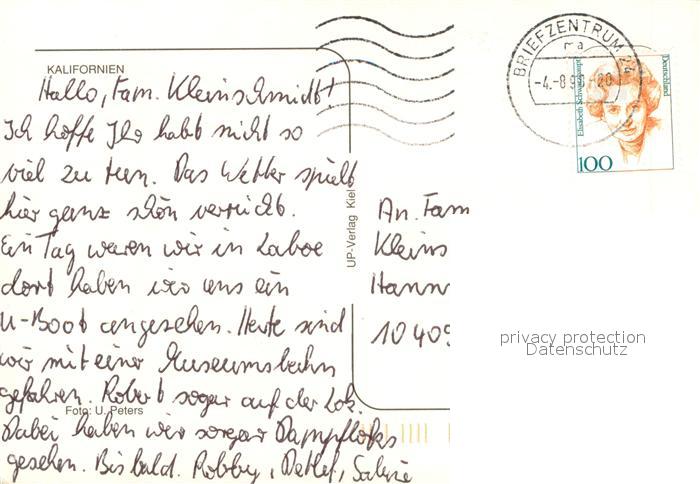 BRIEFZENTRUM 24
ma
-4.-8.98-20
Deutschland
Elisabeth Schwarzhaupt
100
KALIFORNIEN
Hallo, Fam. Kleinschmidt!
Ich hoffe Ihr habt nicht so
viel zu tun. Das Wetter spielt
hier ganz schön verrückt.
Ein Tag waren wir in Laboe
dort haben wir uns ein
U-Boot angesehen. Heute sind
wir mit einer Museumsbahn
gefahren. Robert sogar auf der Lok.
Foto: U. Peters
Dabei haben wir sogar Dampfloks
gesehen. Bis bald. Robby, Detlef, Sabine
UP-Verlag Kiel
An Fam
Kleins
Hann
10409
privacy protection
Datenschutz